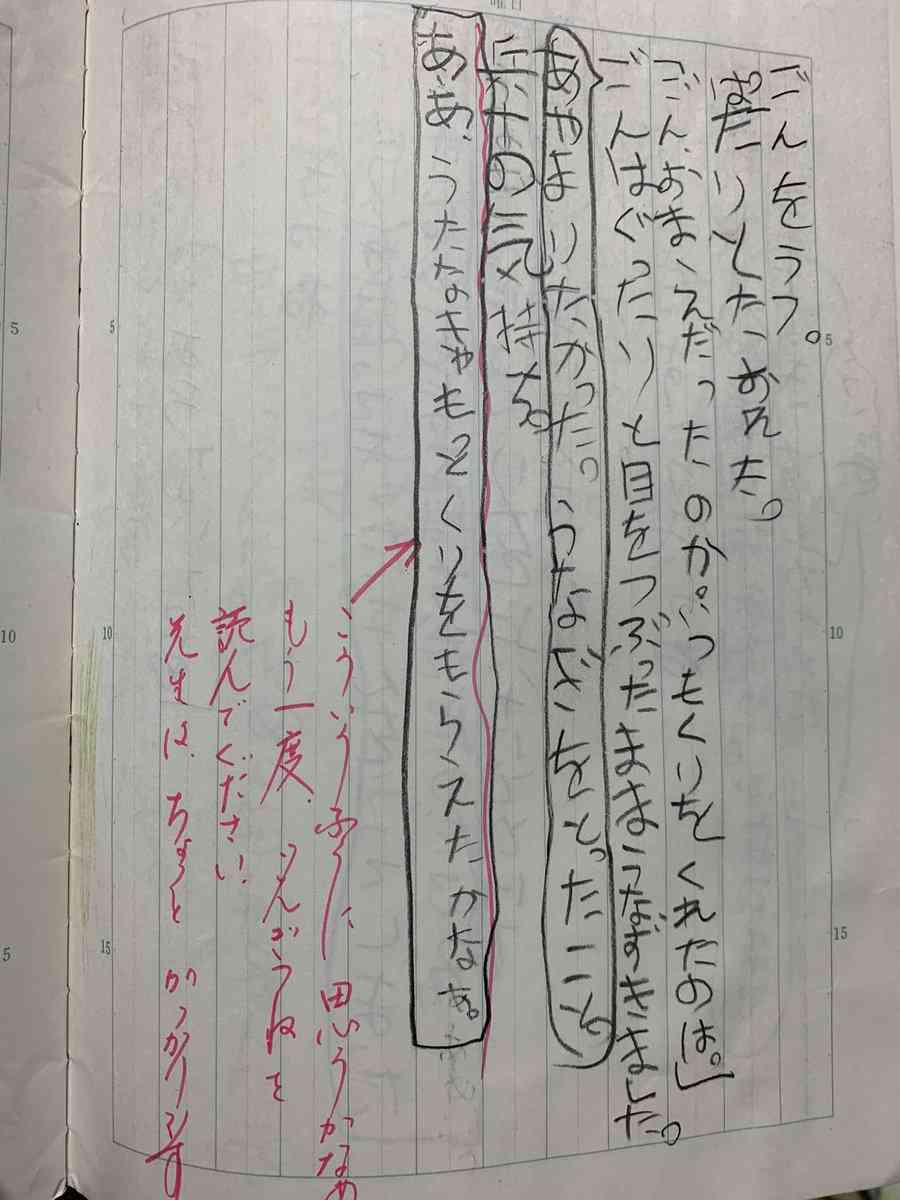 ごんをうつ。
ばたりとたおれた。
ごん、おまえだったのか。いつもくりをくれたのは。」
ごんはぐったりと目をつぶったままうなずきました。
あやまりたかった。うなぎをとったこと。
兵十の気持ち。
あ、あ、うたなきゃもっとくりをもらえたかなぁ。
こういうふうに、思うかなぁ
もう一度、ごんぎつねを
読んでください。
先生は、ちょっと がっかりです
5
10
15
5
10
15
5
10
5
曜日